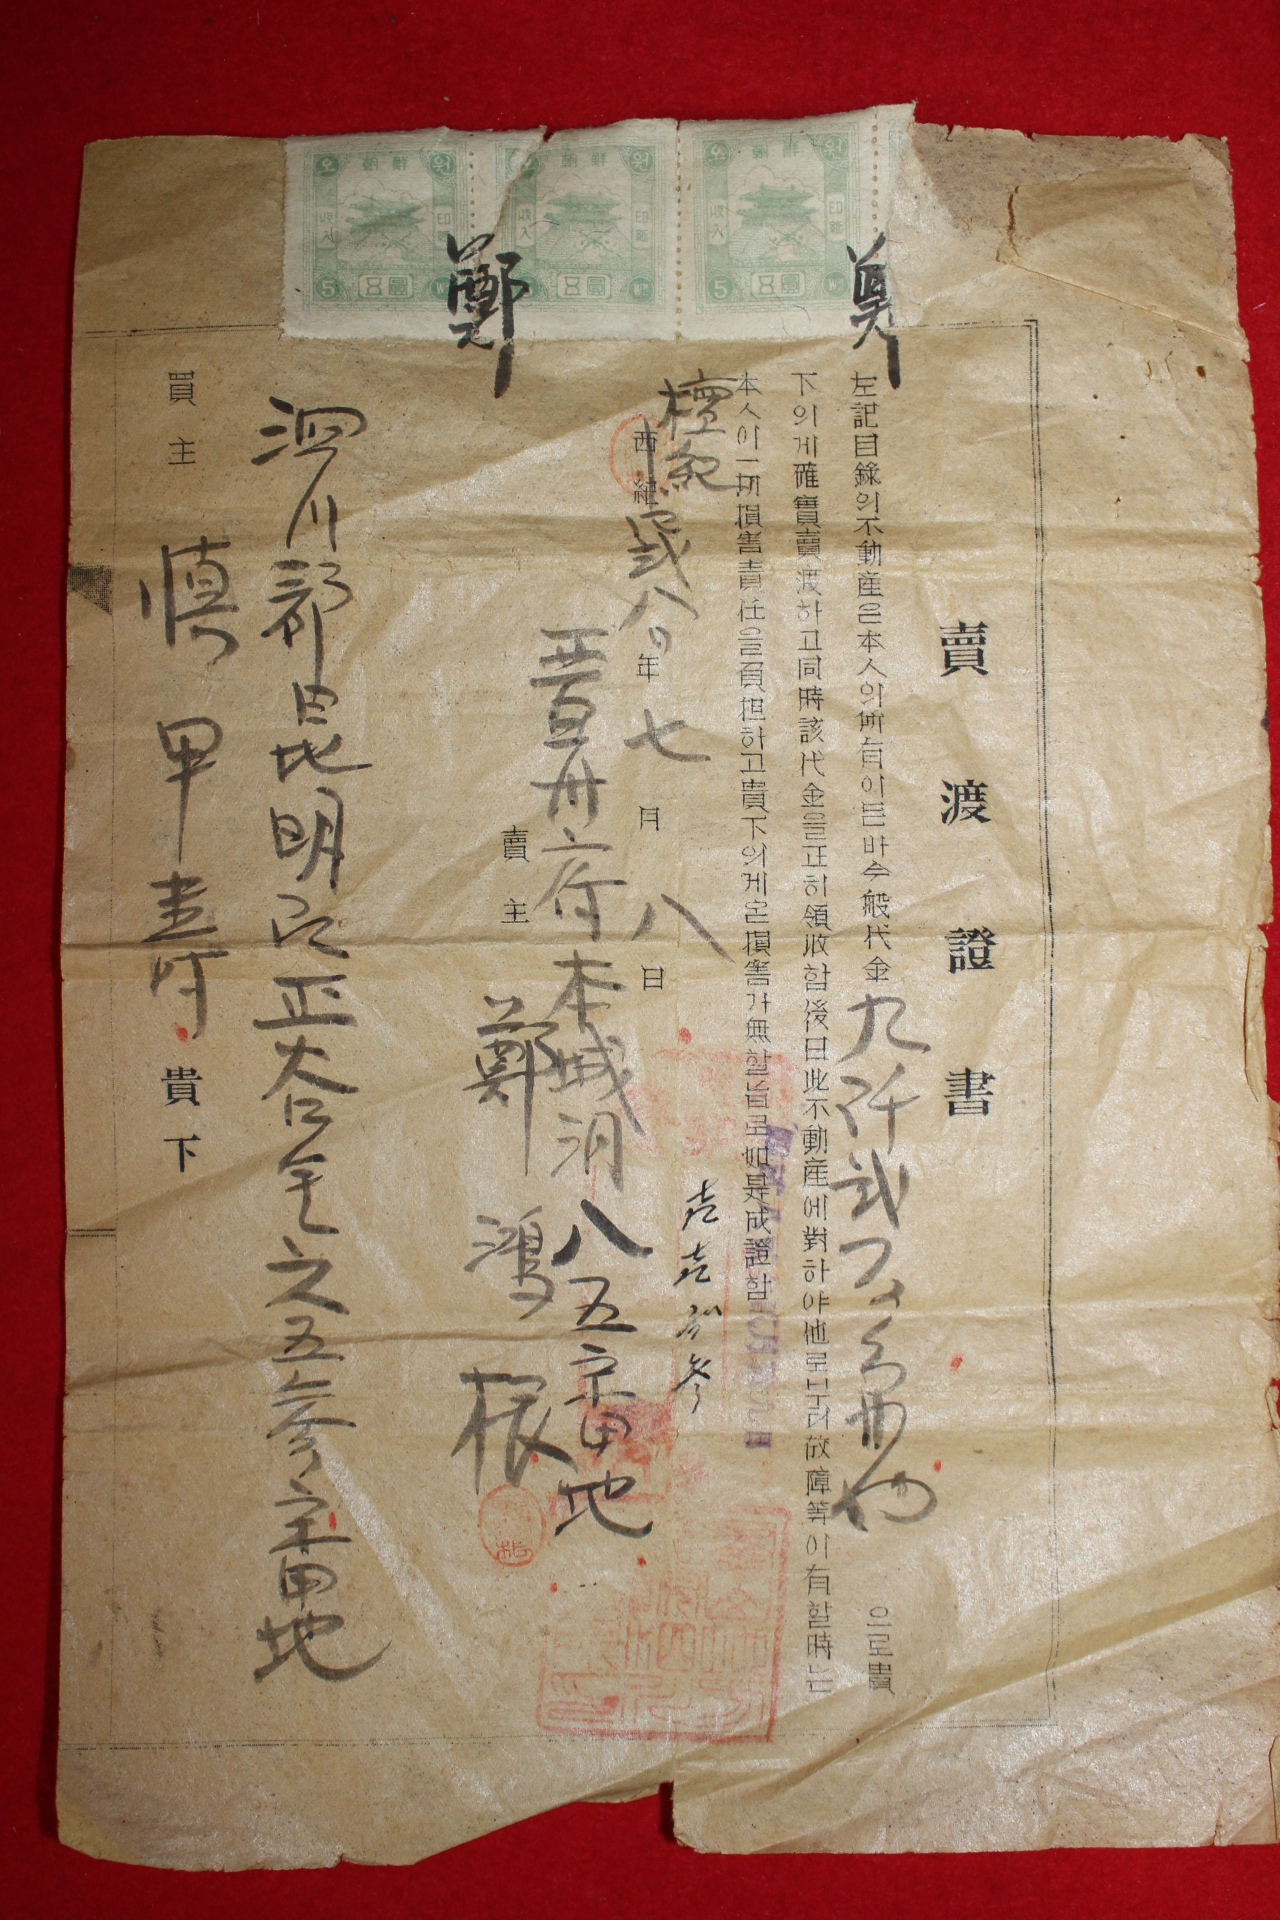 오 朝鮮 원
收入 印紙
5 五圓 Wn
오 朝鮮 원
收入 印紙
5 五圓 Wn
오 朝鮮
收入 印紙
5 五圓
鄭
鄭
賣渡證書
左記目錄의不動産은本人의所有이든바今般代金九阡弍百 으로貴
下의게確實賣渡하고同時該代金을正히領收함後日此不動産에對하야他로부터故障等이有할時는
本人이一切損害責任을負担하고貴下의게는損害가無할旨로如是成證함
西紀
檀紀 弍八〇年七月八日
晋州府本城洞八五番地
賣主 鄭鴻根
泗川郡昆明面正谷里之五參番地
買主 愼甲 貴下